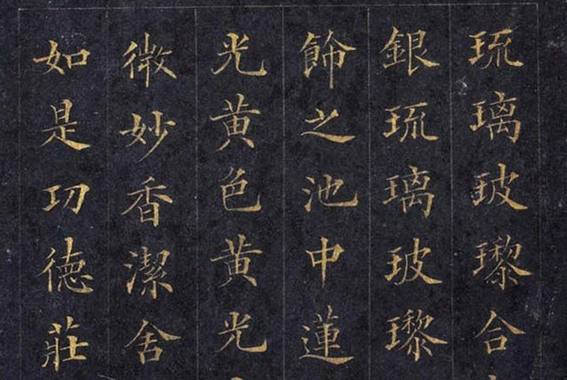 琉璃玻瓈合
銀琉璃玻瓈
飾之池中蓮
光黄色黄光
微妙香潔舍
如是功德莊